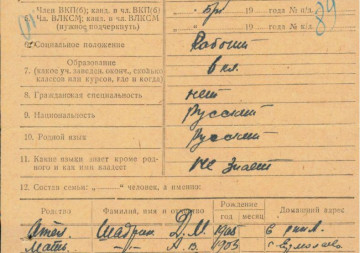 Член ВКП(б), канд. в чл. ВКП(б)
Член ВЛКСМ; канд. в чл. ВЛКСМ
(нужное подчеркнуть) 19 года №п/л. 19 года №к/л.
6. Социальное положение Рабочий
Образование
7. (какое уч. заведен. оконч., сколько
классов или курсов, где и когда) 6 кл.
8. Гражданская специальность нет
9. Национальность Русский
10. Родной язык Русский
11. Какие языки знает кроме род-
ного и как ими владеет не знает
12. Состав семьи: „—“ человек, а именно:
Родство Фамилия, имя и отчество Рождение Домашний адрес
год мес.
Д. М. 1905
Мать —"— А. В. 1903